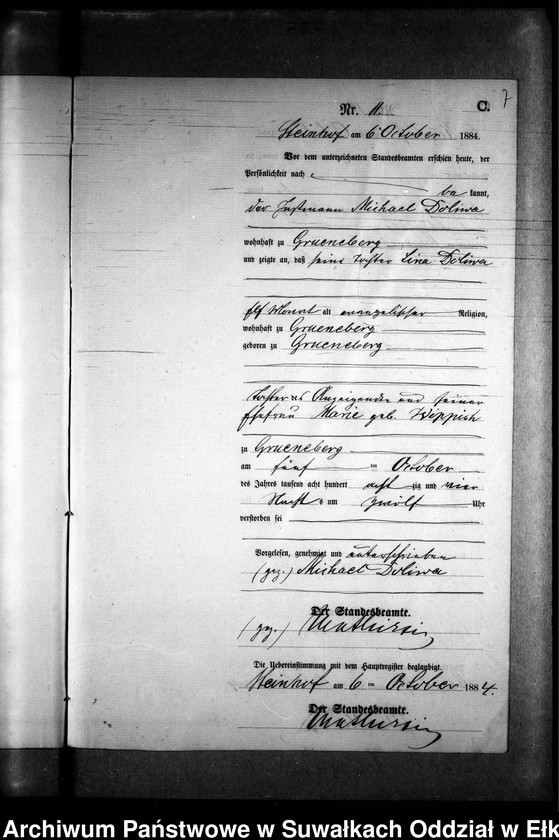 7
Nr. 11. C.
Steinhof am 6 October 1884.
Vor dem unterzeichneten Standesbeamten erschien heute, der
Persönlichkeit nach
be kannt,
der Instmann Michael Doliwa
wohnhaft zu Grueneberg
und zeigte an, daß seine Tochter Lina Doliwa
elf Monat alt evangelischer Religion,
wohnhaft zu Grueneberg
geboren zu Grueneberg
Tochter des Anzeigenden und seiner
Ehefrau Marie geb. Woppich
zu Grueneberg
am fünf ten October
des Jahres tausend acht hundert acht zig und vier
Nachts um zwölf Uhr
verstorben sei
Vorgelesen, genehmigt und unterschrieben
(gez.) Michael Doliwa
Der Standesbeamte.
(gez.)
Die Uebereinstimmung mit dem Hauptregister beglaubigt.
Steinhof am 6 ten October 1884.
Der Standesbeamte.
Archiwum Państwowe w Suwałkach Oddział w Ełk